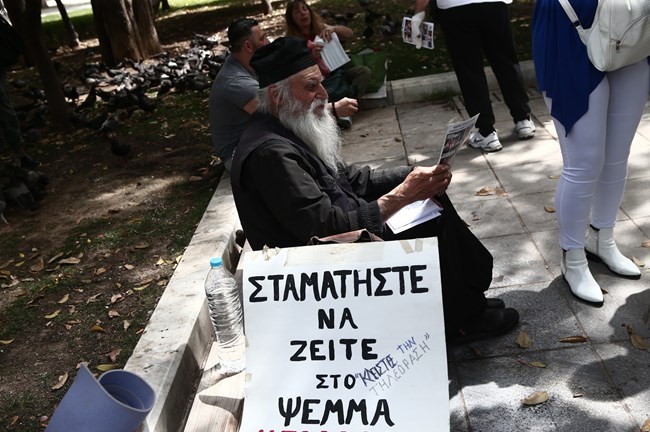 ΣΤΑΜΑΤΗΣΤΕ
ΝΑ
ΖΕΙΤΕ
ΣΤΟ
"ΚΛΕΙΣΤΕ ΤΗΝ
ΤΗΛΕΟΡΑΣΗ"
ΨΕΜΜΑ